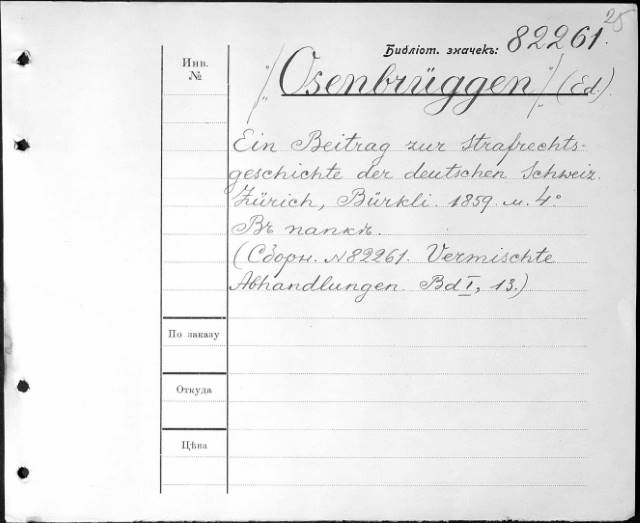 25
Библіот. значекъ: 82261.
Инв.
№
/"Osenbrüggen"/ (Ed.)
Ein Beitrag zur Strafrechts-
geschichte der deutschen Schweiz.
Zürich, Bürkli. 1859. м. 4°
Въ папкѣ.
(Сборн. №82261. Vermischte
Abhandlungen. Bd I, 13.)
По заказу
Откуда
Цѣна